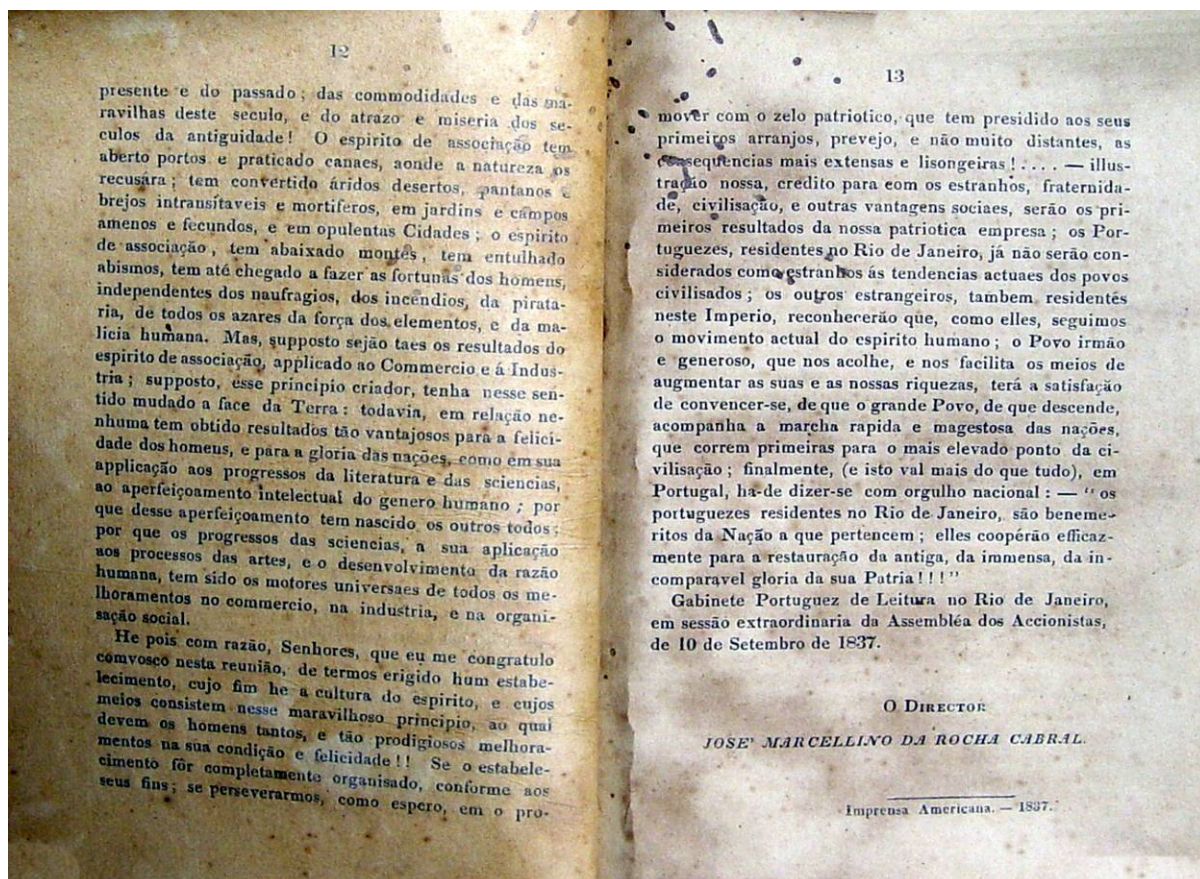 12
presente e do passado; das commodidades e das ma-
ravilhas deste seculo, e do atrazo e miseria dos se-
culos da antiguidade! O espirito de associação tem
aberto portos e praticado canaes, aonde a natureza os
recusára; tem convertido áridos desertos, pantanos e
brejos intransitaveis e mortiferos, em jardins e campos
amenos e fecundos, e em opulentas Cidades; o espirito
de associação, tem abaixado montes, tem entulhado
abismos, tem até chegado a fazer as fortunas dos homens,
independentes dos naufragios, dos incendios, da pirata-
ria, de todos os azares da força dos elementos, e da ma-
licia humana. Mas, supposto sejão taes os resultados do
espirito de associação, applicado ao Commercio e á Indus-
tria; supposto, esse principio criador, tenha nesse sen-
tido mudado a face da Terra: todavia, em relação ne-
nhuma tem obtido resultados tão vantajosos para a felici-
dade dos homens, e para a gloria das nações, como em sua
applicação aos progressos da literatura e das sciencias,
ao aperfeiçoamento intelectual do genero humano; por
que desse aperfeiçoamento tem nascido os outros todos;
por que os progressos das sciencias, a sua aplicação
aos processos das artes, e o desenvolvimento da razão
humana, tem sido os motores universaes de todos os me-
lhoramentos no commercio, na industria, e na organi-
sação social.
He pois com razão, Senhores, que eu me congratulo
comvosco nesta reunião, de termos erigido hum estabe-
lecimento, cujo fim he a cultura do espirito, e cujos
meios consistem nesse maravilhoso principio, ao qual
devem os homens tantos, e tão prodigiosos melhora-
mentos na sua condição e felicidade!! Se o estabele-
cimento fôr completamente organisado, conforme aos
seus fins; se perseverarmos, como espero, em o pro-
13
mover com o zelo patriotico, que tem presidido aos seus
primeiros arranjos, prevejo, e não muito distantes, as
consequencias mais extensas e lisongeiras!.... — illus-
tração nossa, credito para com os estranhos, fraternida-
de, civilisação, e outras vantagens sociaes, serão os pri-
meiros resultados da nossa patriotica empresa; os Por-
tuguezes, residentes no Rio de Janeiro, já não serão con-
siderados como estranhos ás tendencias actuaes dos povos
civilisados; os outros estrangeiros, tambem residentes
neste Imperio, reconhecerão que, como elles, seguimos
o movimento actual do espirito humano; o Povo irmão
e generoso, que nos acolhe, e nos facilita os meios de
augmentar as suas e as nossas riquezas, terá a satisfação
de convencer-se, de que o grande Povo, de que descende,
acompanha a marcha rapida e magestosa das nações,
que correm primeiras para o mais elevado ponto da ci-
vilisação; finalmente, (e isto val mais do que tudo), em
Portugal, ha-de dizer-se com orgulho nacional: — "os
portuguezes residentes no Rio de Janeiro, são beneme-
ritos da Nação a que pertencem; elles coopérão efficaz-
mente para a restauração da antiga, da immensa, da in-
comparavel gloria da sua Patria!!!"
Gabinete Portuguez de Leitura no Rio de Janeiro,
em sessão extraordinaria da Assembléa dos Accionistas,
de 10 de Setembro de 1837.
O DIRECTOR
JOSE' MARCELLINO DA ROCHA CABRAL.
Imprensa Americana. — 1837.